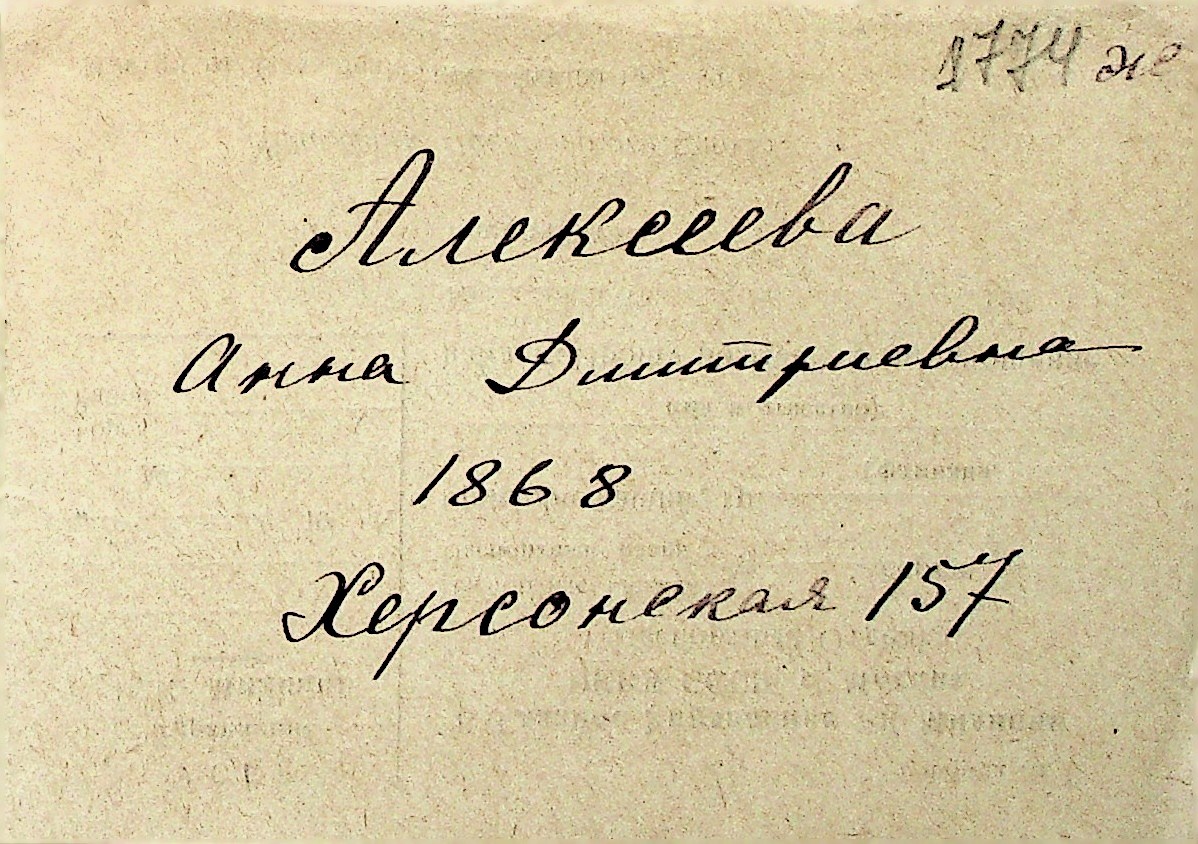 1774 же
Алексеева
Анна Дмитриевна
1868
Херсонская 157